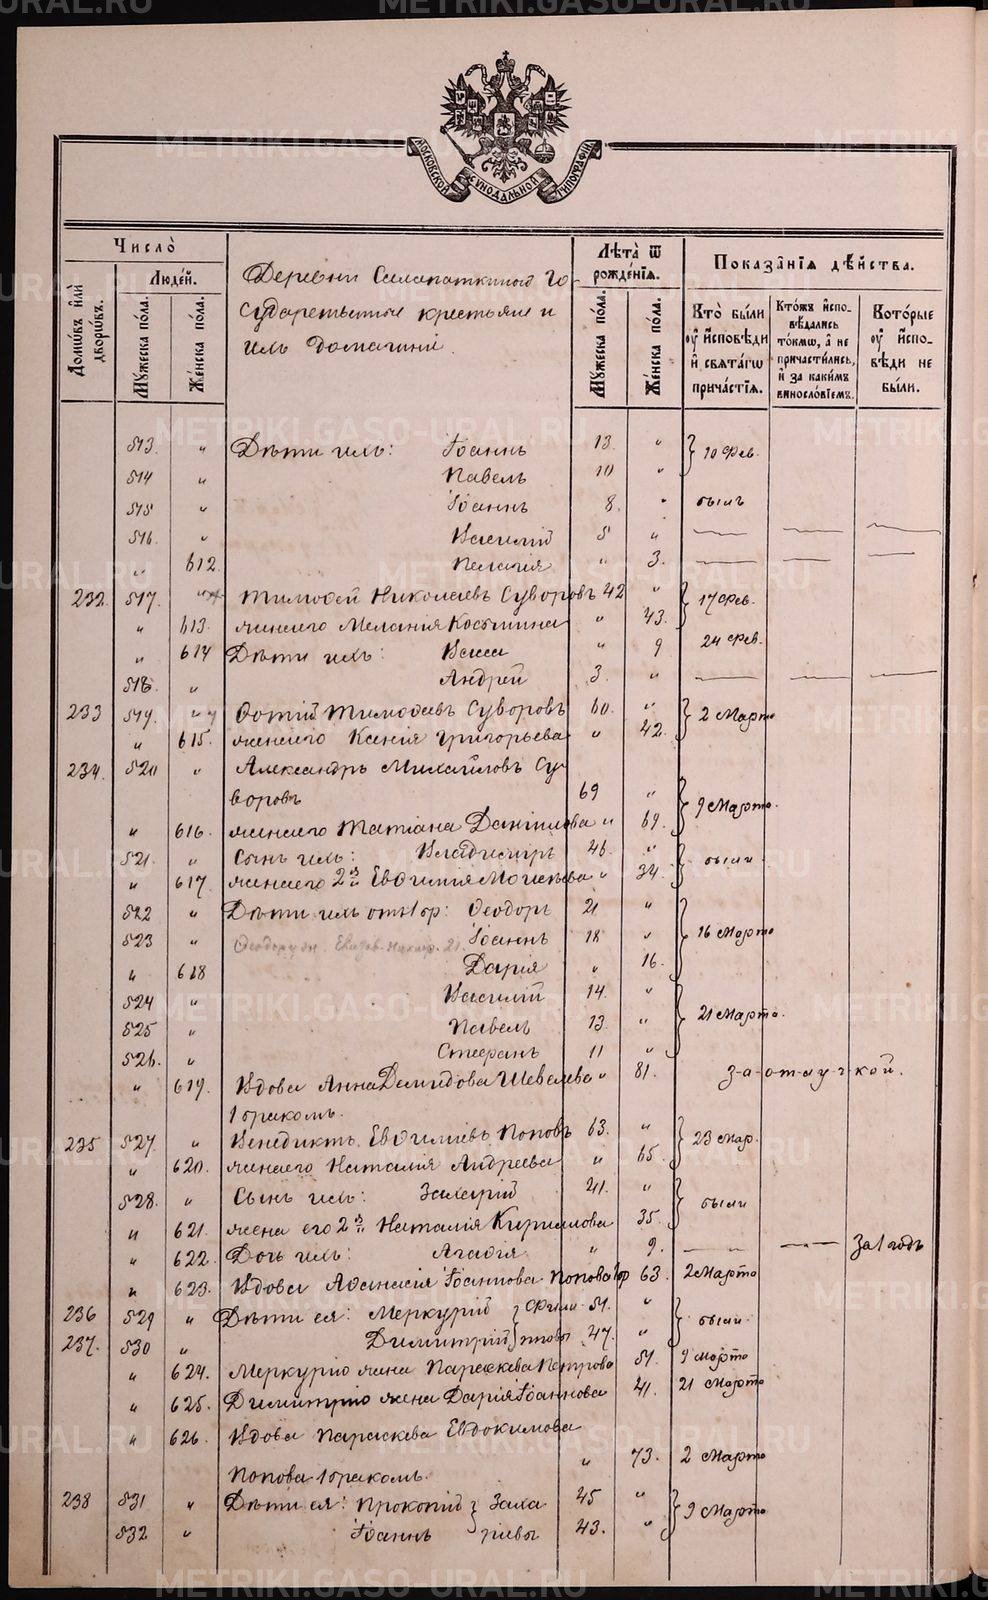 МОСКОВСКОЙ СѴНОДАЛЬНОЙ ТИПОГРАФІИ
Число̀
Домѡвъ и҆лѝ дворѡвъ.
Люде́й.
Мꙋ́жеска по́ла.
Же́нска по́ла.
Деревни Салопаткиной Го-
сударственные крестьяне и
ихъ домашніе.
Лѣ́та ѿ рожде́нїѧ.
Мꙋ́жеска по́ла.
Же́нска по́ла.
Показа́нїѧ дѣ́йства.
Кто̀ бы́ли ᲂу҆ и҆́сповѣди и҆ свѧта́гѡ прича́стїѧ.
Кто́жъ и҆спо- вѣ́дались то́кмѡ, а҆ не причасти́лись, и҆ за каки́мъ виносло́вїемъ.
Кото́рые ᲂу҆ и҆спо- вѣди не бы́ли.
513. " Дѣти ихъ: Іоаннъ 13. " } 10 Фев.
514 " Павелъ 10 "
515 " Іоаннъ 8. " были
516. " Василій 5 " — — —
" 612. Пелагія " 3. — — —
232. 517. " Тимофей Николаевъ Суворовъ 42 " } 17 Фев.
" 613. жена его Меланія Косьмина " 43.
" 614 Дѣти ихъ: " 9 24 Фев.
518. " Андрей 3. " — — —
233 519. " Фотій Тимофеевъ Суворовъ 60. " } 2 Марта
" 615. жена его Ксенія Григорьева " 42.
234. 520 " Александръ Михайловъ Су-
воровъ 69 " } 9 Марта.
" 616. жена его Татіана Даніилова " 69.
521. " Сынъ ихъ: Владиміръ 46. " } были
" 617. жена его 2я Евфимія Моисеева " 34.
522 " Дѣти ихъ отъ 1 бр: Феодоръ 21 " } 16 Марта
523 " Іоаннъ 18 "
" 618 Дарія " 16.
524 " Василій 14. " } 21 Марта.
525 " Павелъ 13. "
526. " Стефанъ 11 "
" 619. Вдова Анна Демидова Шевелева " 81. за отлучкой.
1 бракомъ.
235 527. " Венедиктъ Евфиміевъ Поповъ 63. " } 23 Мар.
" 620. жена его Наталія Андреева " 65.
528. " Сынъ ихъ: Захарій 41. " } были
" 621. жена его 2я Наталія Кириллова 35.
" 622. Дочь ихъ: Агафія " 9. — — За 1 годъ
" 623. Вдова Афанасія Іоаннова Попова 1 бр 63. 2 Марта
236 529 " Дѣти ея: Меркурій } Фили- 51. " } были
237. 530 " Димитрій } пповы 47. "
" 624. Меркурію жена Параскева Петрова 51. 9 Марта
" 625. Димитрію жена Дарія Іоаннова 41. 21 Марта
" 626. Вдова Параскева Евдокимова
Попова 1 бракомъ. " 73. 2 Марта
238 531 " Дѣти ея: Прокопій } Заха 45 " } 9 Марта
532 " Іоаннъ } ріевы 43. "
METRIKI.GASO-URAL.RU